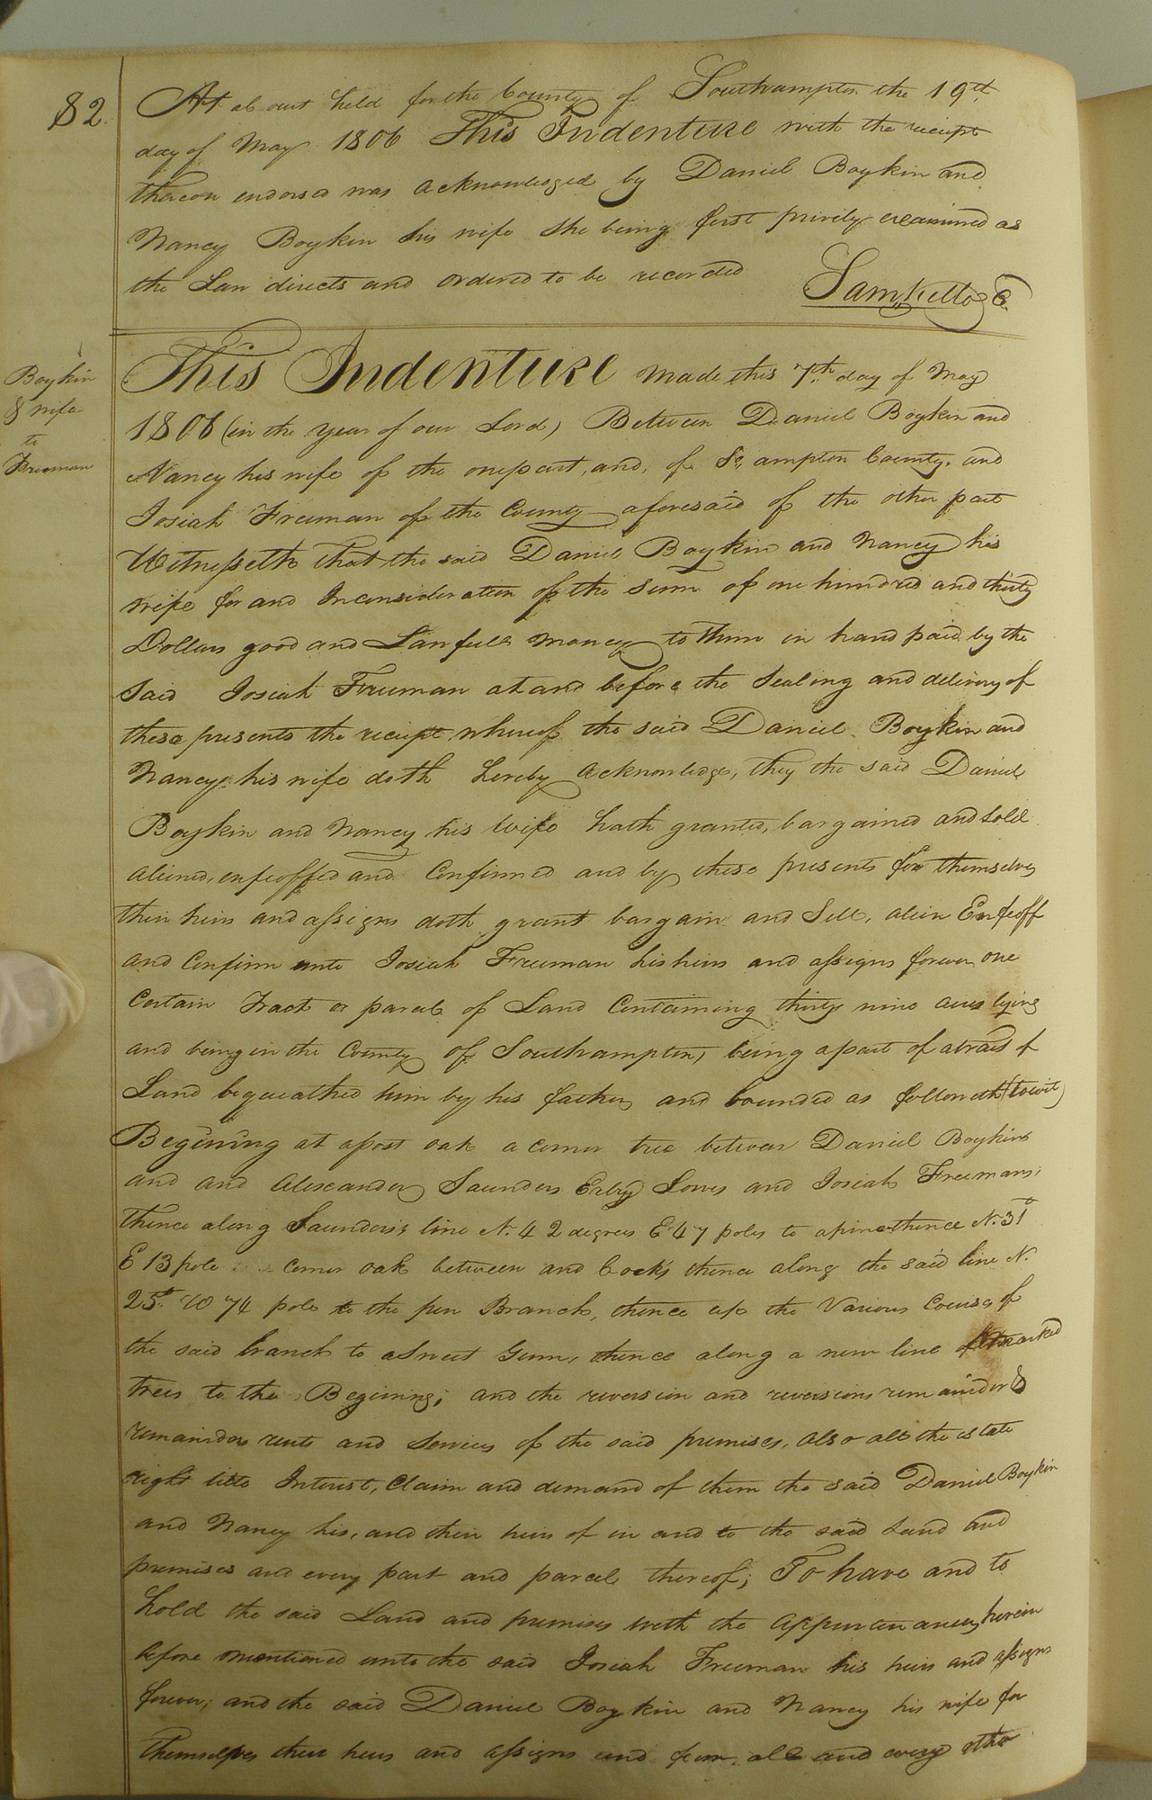 82.
At a Court held for the County of Southampton the 19th
day of May 1806 This Indenture with the receipt
thereon endorsed was acknowledged by Daniel Boykin and
Nancy Boykin his wife she being first privily examined as
the Law directs and ordered to be recorded
Sam Kello C
Boykin
& wife
to
Freeman
This Indenture made this 7th day of May
1806 (in the year of our Lord) Between Daniel Boykin and
Nancy his wife of the one part, and, of So,ampton County, and
Josiah Freeman of the County aforesaid of the other part
Witnesseth that the said Daniel Boykin and Nancy his
wife for and Inconsideration of the sum of one hundred and thirty
Dollars good and Lawfull money to them in hand paid by the
Said Josiah Freeman at and before the Sealing and delivery of
these presents the receipt whereof the said Daniel Boykin and
Nancy his wife doth hereby acknowledge, they the said Daniel
Boykin and Nancy his wife hath granted, bargained and sold
aliened, enfeoffed and Confirmed and by these presents for themselves
their heirs and assigns doth grant bargain and Sell, alien Enfeoff
and Confirm unto Josiah Freeman his heirs and assigns forever one
Certain Tract or parcel of Land Containing thirty nine acres lying
and being in the County of Southampton, being apart of atract of
Land bequeathed him by his father, and bounded as followeth (towit)
Begining at apost oak a corner tree between Daniel Boykins
and and Alexander Saunders and Josiah Freemans
thence along Saunders's line N. 42 degrees E 47 poles to apine thence N. 31°
E 13 pole corner oak between and Cock's thence along the said line N.
25° W 74 pole to the pen Branch, thence up the Various Courses of
the said branch to aSweet Gum, thence along a new line of marked
trees to the Begining; and the reversion and reversions remainder &
remainders rents and Services of the said premises, also all the estate
right title Interest, Claim and demand of them the said Daniel Boykin
and Nancy his, and their heirs of in and to the said Land and
premises and every part and parcel thereof; To have and to
hold the said Land and premises with the appurtenances herein
before mentioned unto the said Josiah Freeman his heirs and assigns
forever; and the said Daniel Boykin and Nancy his wife for
themselves their heirs and assigns and from all and every other